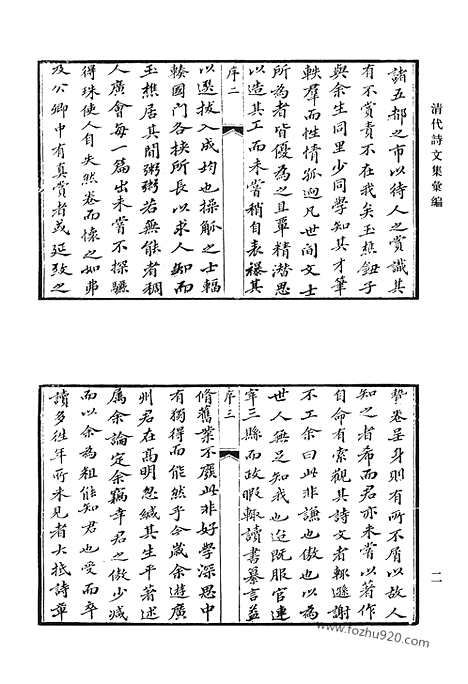 清代詩文集彙編
諸五都之市以待人之賞識其
有不賞責不在我矣玉樵鈕子
與余生同里少同學知其才筆
軼羣而性情狐迥凡世間文士
所為者皆優為之且覃精潛思
以造其工而未嘗稍自表襮其
序二
以選拔入成均也操觚之士輻
輳國門各挾所長以求人知而
玉樵居其間粥粥若無能者稠
人廣會每一篇出未嘗不探驪
得珠使人自失然卷而懷之如弗
及公卿中有真賞者或延致之
挚卷呈身則有所不屑以故人
知之者希而君亦未嘗以著作
自命有索觀其詩文者輒遜謝
不工余曰此非謙也傲也以為
世人無足知我也近既服官連
宰三縣而政暇輒讀書纂言益
序三
脩舊業不廢此非好學深思中
有獨得而能然乎今歲余遊廣
州君在高明忽緘其生平著述
屬余論定余竊幸君之傲少減
而以余為粗能知君也受而卒
讀多往年所未見者大抵詩華
二
www.fozhu920.com